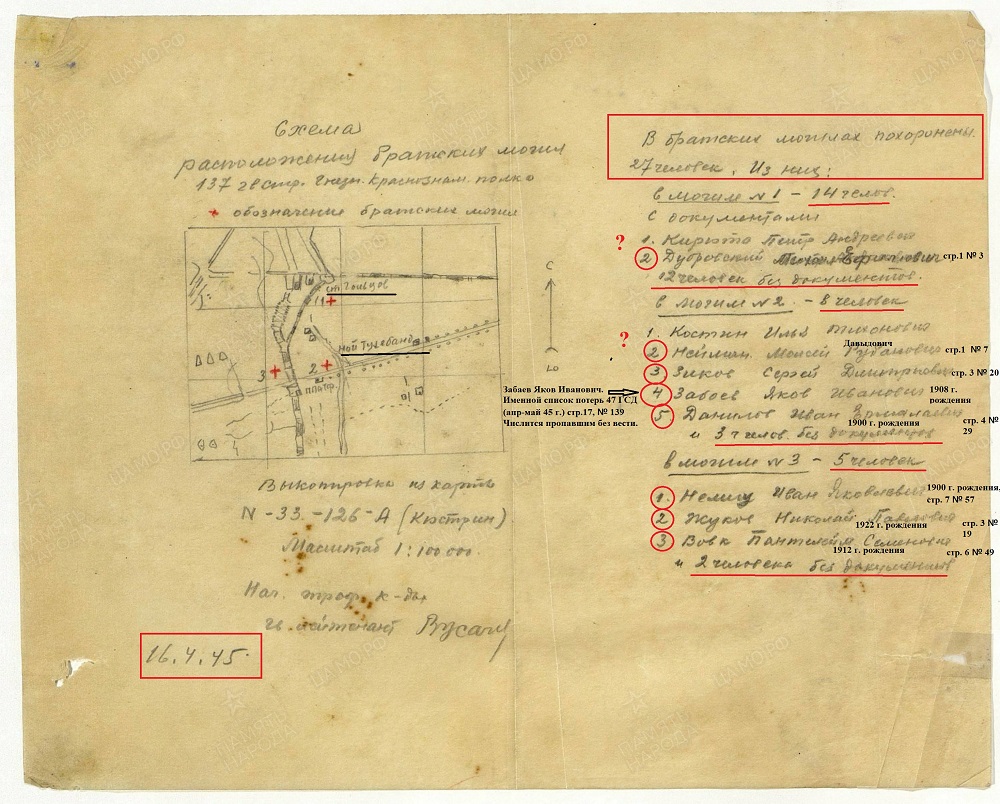 Схема
расположения братских могил
137 гв стр. Гнезн. Краснознам. полка
+ обозначение братских могил
ст. Гольцов
1
Ной Тухебанд
3
2
п. платф.
С
Ю
Выкопировка из карты
N-33-126-А (Кюстрин)
Масштаб 1:100 000.
Нач. троф. к-ды
гв. лейтенант Вусач
16.4.45.
В братских могилах похоронены
27 человек. Из них:
в могиле №1 - 14 челов.
с документами
? 1. Кирюта Петр Андреевич
2 Дубровский Ефимович стр.1 № 3
12 человек без документов.
в могиле №2. - 8 человек
? 1. Костин Илья Тихонович
Давыдович
2 Нейман. Моисей стр.1 № 7
3 Зиков Сергей Дмитриевич стр. 3 № 20
4 Забоев Яков Иванович 1908 г. рождения
Забаев Яков Иванович.
Именной список потерь 47 ГСД
(апр-май 45 г.) стр.17, № 139
Числится пропавшим без вести.
5 Данилов Иван Ермалаевич стр. 4 № 29
1900 г. рождения
и 3 челов. без документов
в могиле №3 - 5 человек
1. Нелищ Иван Яковлевич 1900 г. рождения. стр. 7 № 57
2 Жуков Николай Павлович стр. 3 № 19
1922 г. рождения
3 Вовк Пантелейм. Семенович
1912 г. рождения стр. 6 № 49
и 2 человека без документов
ЦАМО.РФ
ПАМЯТЬ НАРОДА